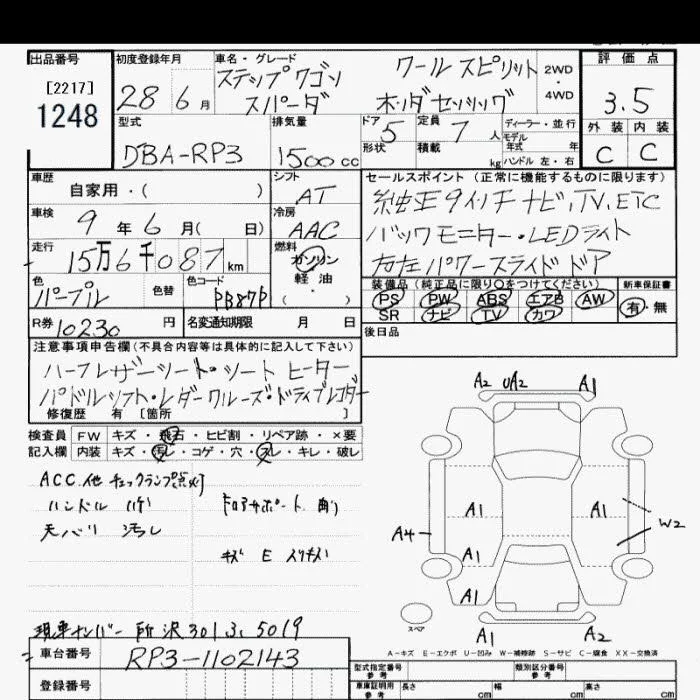 出品番号
[2217]
1248
初度登録年月
28 6月
車名・グレード
ステップワゴン
スパーダ
クールスピリット
ホンダセンシング
2WD
・
4WD
評価点
3.5
外装 内装
C C
型式
DBA-RP3
排気量
1500cc
ドア 5
形状
定員 7人
積載 kg
ディーラー・並行
モデル
年式 年
ハンドル 左・右
車歴
自家用・( )
シフト
AT
車検
9年6月( 日)
冷房
AAC
走行
15万6千087km
燃料
ガソリン
軽油
・
( )
色
パープル
色替
色コード
PB87P
R券 10230円
名変通知期限 月 日
セールスポイント(正常に機能するものに限ります)
純正9インチナビ,TV,ETC
バックモニター・LEDライト
左右パワースライドドア
装備品(純正品に限り○をつけてください)
PS PW ABS エアB AW
SR ナビ TV カワ
新車保証書
有・無
後日品
注意事項申告欄(不具合内容等は具体的に記入して下さい)
ハーフレザーシート・シートヒーター
パドルシフト・レダークルーズ・ドライブレコダー
修復歴 有 [箇所 ]
検査員 FW キズ・飛石・ヒビ割・リペア跡・×要
記入欄 内装 キズ・汚レ・コゲ・穴・スレ・キレ・破レ
ACC.他 チェックランプ点灯
ハンドル ハゲ
ドロアサポート 曲り
天バリ 汚レ
キズ E スリキズ
現車ナンバー 所沢301 ス 5019
車台番号 RP3-1102143
登録番号
A2 UA2 A1
A1 A1
A4 W2
A1
A1
スペア
A1 A2
A-キズ E-エクボ U-凹み W-補修跡 S-サビ C-腐食 XX-交換済
型式指定番号
参考
類別区分番号
参考
車庫証明用
参考
長さ cm 幅 cm 高さ cm